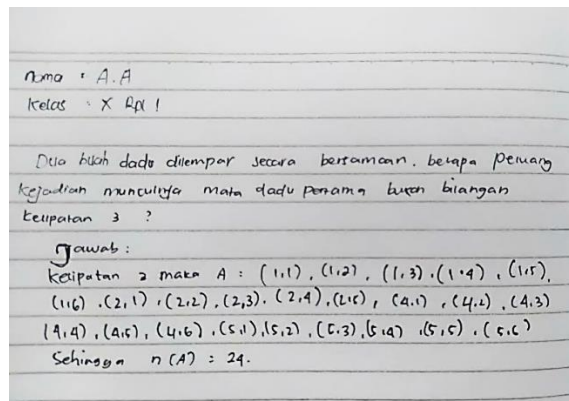 nama : A.A
Kelas : X RPl 1
Dua buah dadu dilempar secara bersamaan. berapa Peluang
Kejadian munculnya mata dadu pertama bukan bilangan
Kelipatan 3 ?
Jawab :
Kelipatan 3 maka A : (1,1), (1,2), (1,3), (1,4), (1,5),
(1,6), (2,1), (2,2), (2,3), (2,4), (2,5), (4,1), (4,2), (4,3)
(4,4), (4,5), (4,6), (5,1), (5,2), (5,3), (5,4), (5,5), (5,6)
Sehingga n (A) : 24.